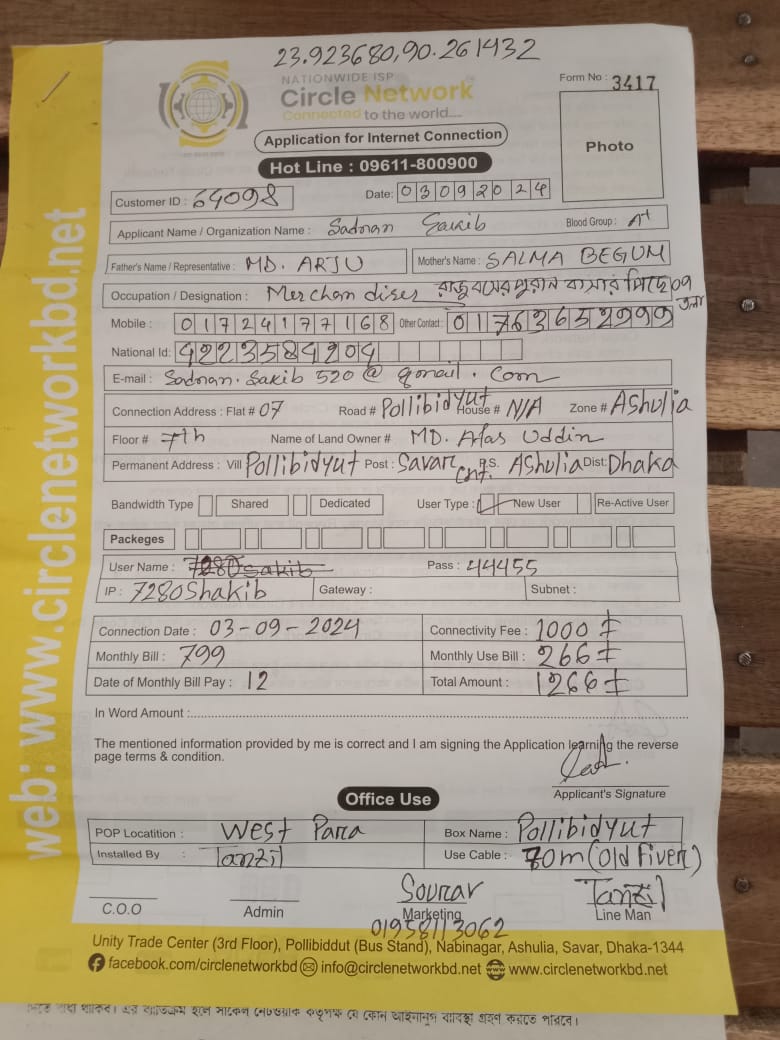 23.923680,90.261432
NATIONWIDE ISP
Circle Network
Connected to the world....
Form No : 3417
Photo
Application for Internet Connection
Hot Line : 09611-800900
Customer ID : 64098
Date: 03092024
Applicant Name / Organization Name : Sadnan Sakib Blood Group : A+
Father's Name / Representative : MD. ARJU Mother's Name : SALMA BEGUM
Occupation / Designation : Merchandiser
Mobile : 01724177168 Other Contact : 01763652999
National Id: 4223584204
E-mail : Sadnan.Sakib520@gmail.com
Connection Address : Flat # 07 Road # Pollibidyut House # N/A Zone # Ashulia
Floor # 7th Name of Land Owner # MD. Afas Uddin
Permanent Address : Vill Pollibidyut Post : Savar Cnt. P.S. Ashulia Dist: Dhaka
Bandwidth Type Shared Dedicated User Type : New User Re-Active User
Packeges
User Name : Pass : 44455
IP : 7280Shakib Gateway : Subnet :
Connection Date : 03-09-2024 Connectivity Fee : 1000
Monthly Bill : 799 Monthly Use Bill : 266
Date of Monthly Bill Pay : 12 Total Amount : 1266
In Word Amount :
The mentioned information provided by me is correct and I am signing the Application learning the reverse
page terms & condition.
Applicant's Signature
Office Use
POP Locatition : West Para Box Name : Pollibidyut
Installed By : Tanzil Use Cable : 70m (Old Fiver)
C.O.O Admin Sourav Marketing Tanzil Line Man
01958113062
Unity Trade Center (3rd Floor), Pollibiddut (Bus Stand), Nabinagar, Ashulia, Savar, Dhaka-1344
facebook.com/circlenetworkbd info@circlenetworkbd.net www.circlenetworkbd.net
web: www.circlenetworkbd.net